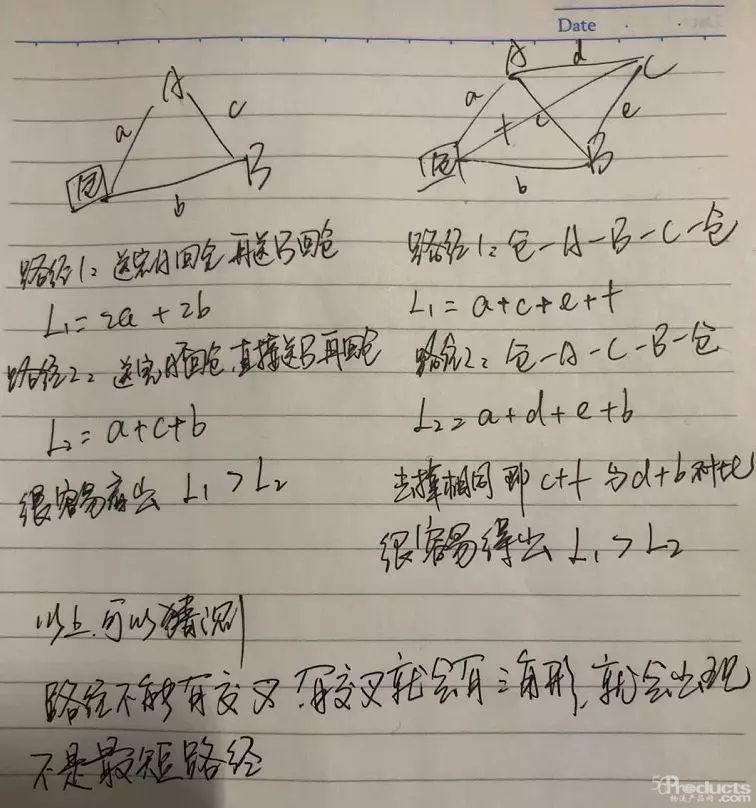 Date
A
a
c
仓
b
B
A
d
C
a
f
c
e
仓
b
B
路径1: 送完A回仓 再送B回仓
L₁=2a+2b
路径2: 送完A不回仓,直接送B再回仓
L₂=a+c+b
很容易看出 L₁>L₂
路径1: 仓-A-B-C-仓
L₁=a+c+e+f
路径2: 仓-A-C-B-仓
L₂=a+d+e+b
去掉相同 即 c+f 与 d+b 对比
很容易得出 L₁>L₂
以上.可以猜测
路径不能有交叉,有交叉就会有三角形,就会出现
不是最短路径
56Products
物流产品网.com